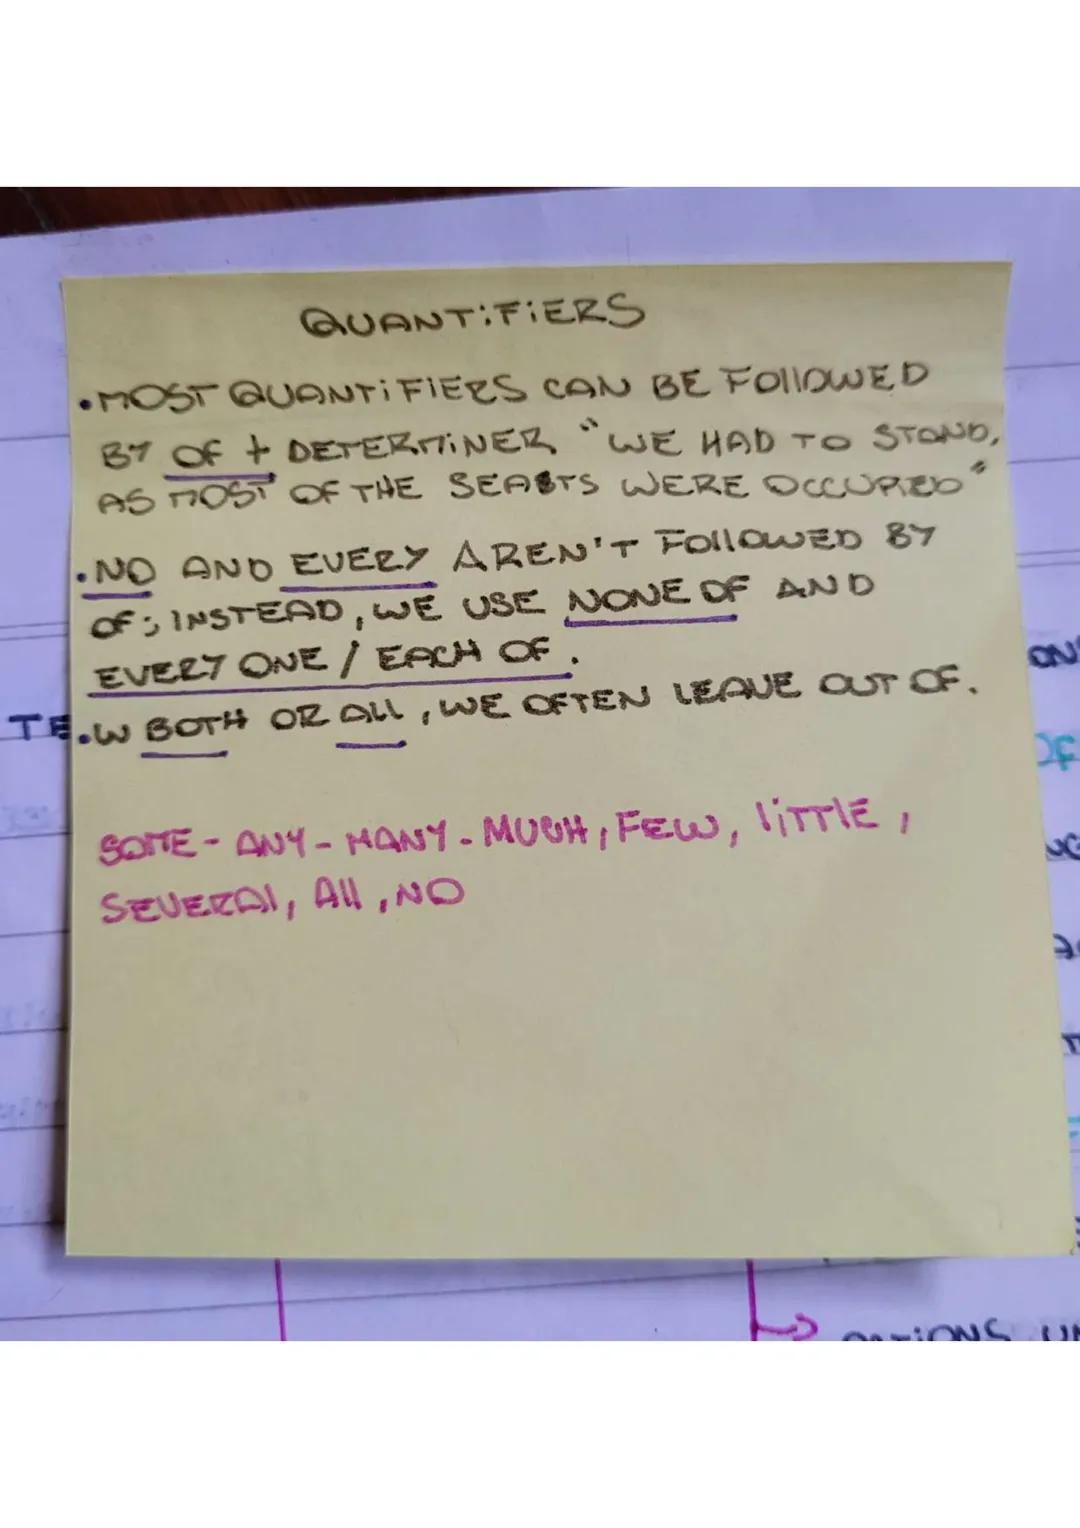 QUANTiFiERS
• MOST QUANTiFIERS CAN BE FOllOWED
BY OF + DETERMiNER "WE HAD TO STAND,
AS MOST OF THE SEATS WERE OCCUPIED"
• NO AND EVERY AREN'T FOllOWED BY
OF; INSTEAD, WE USE NONE OF AND
EVERY ONE / EACH OF.
TE • W BOTH OR All, WE OFTEN LEAVE OUT OF.
SOME - ANY - MANY - MUCH, FEW, liTTlE,
SEVERAl, All, NO
ON
OF
NG